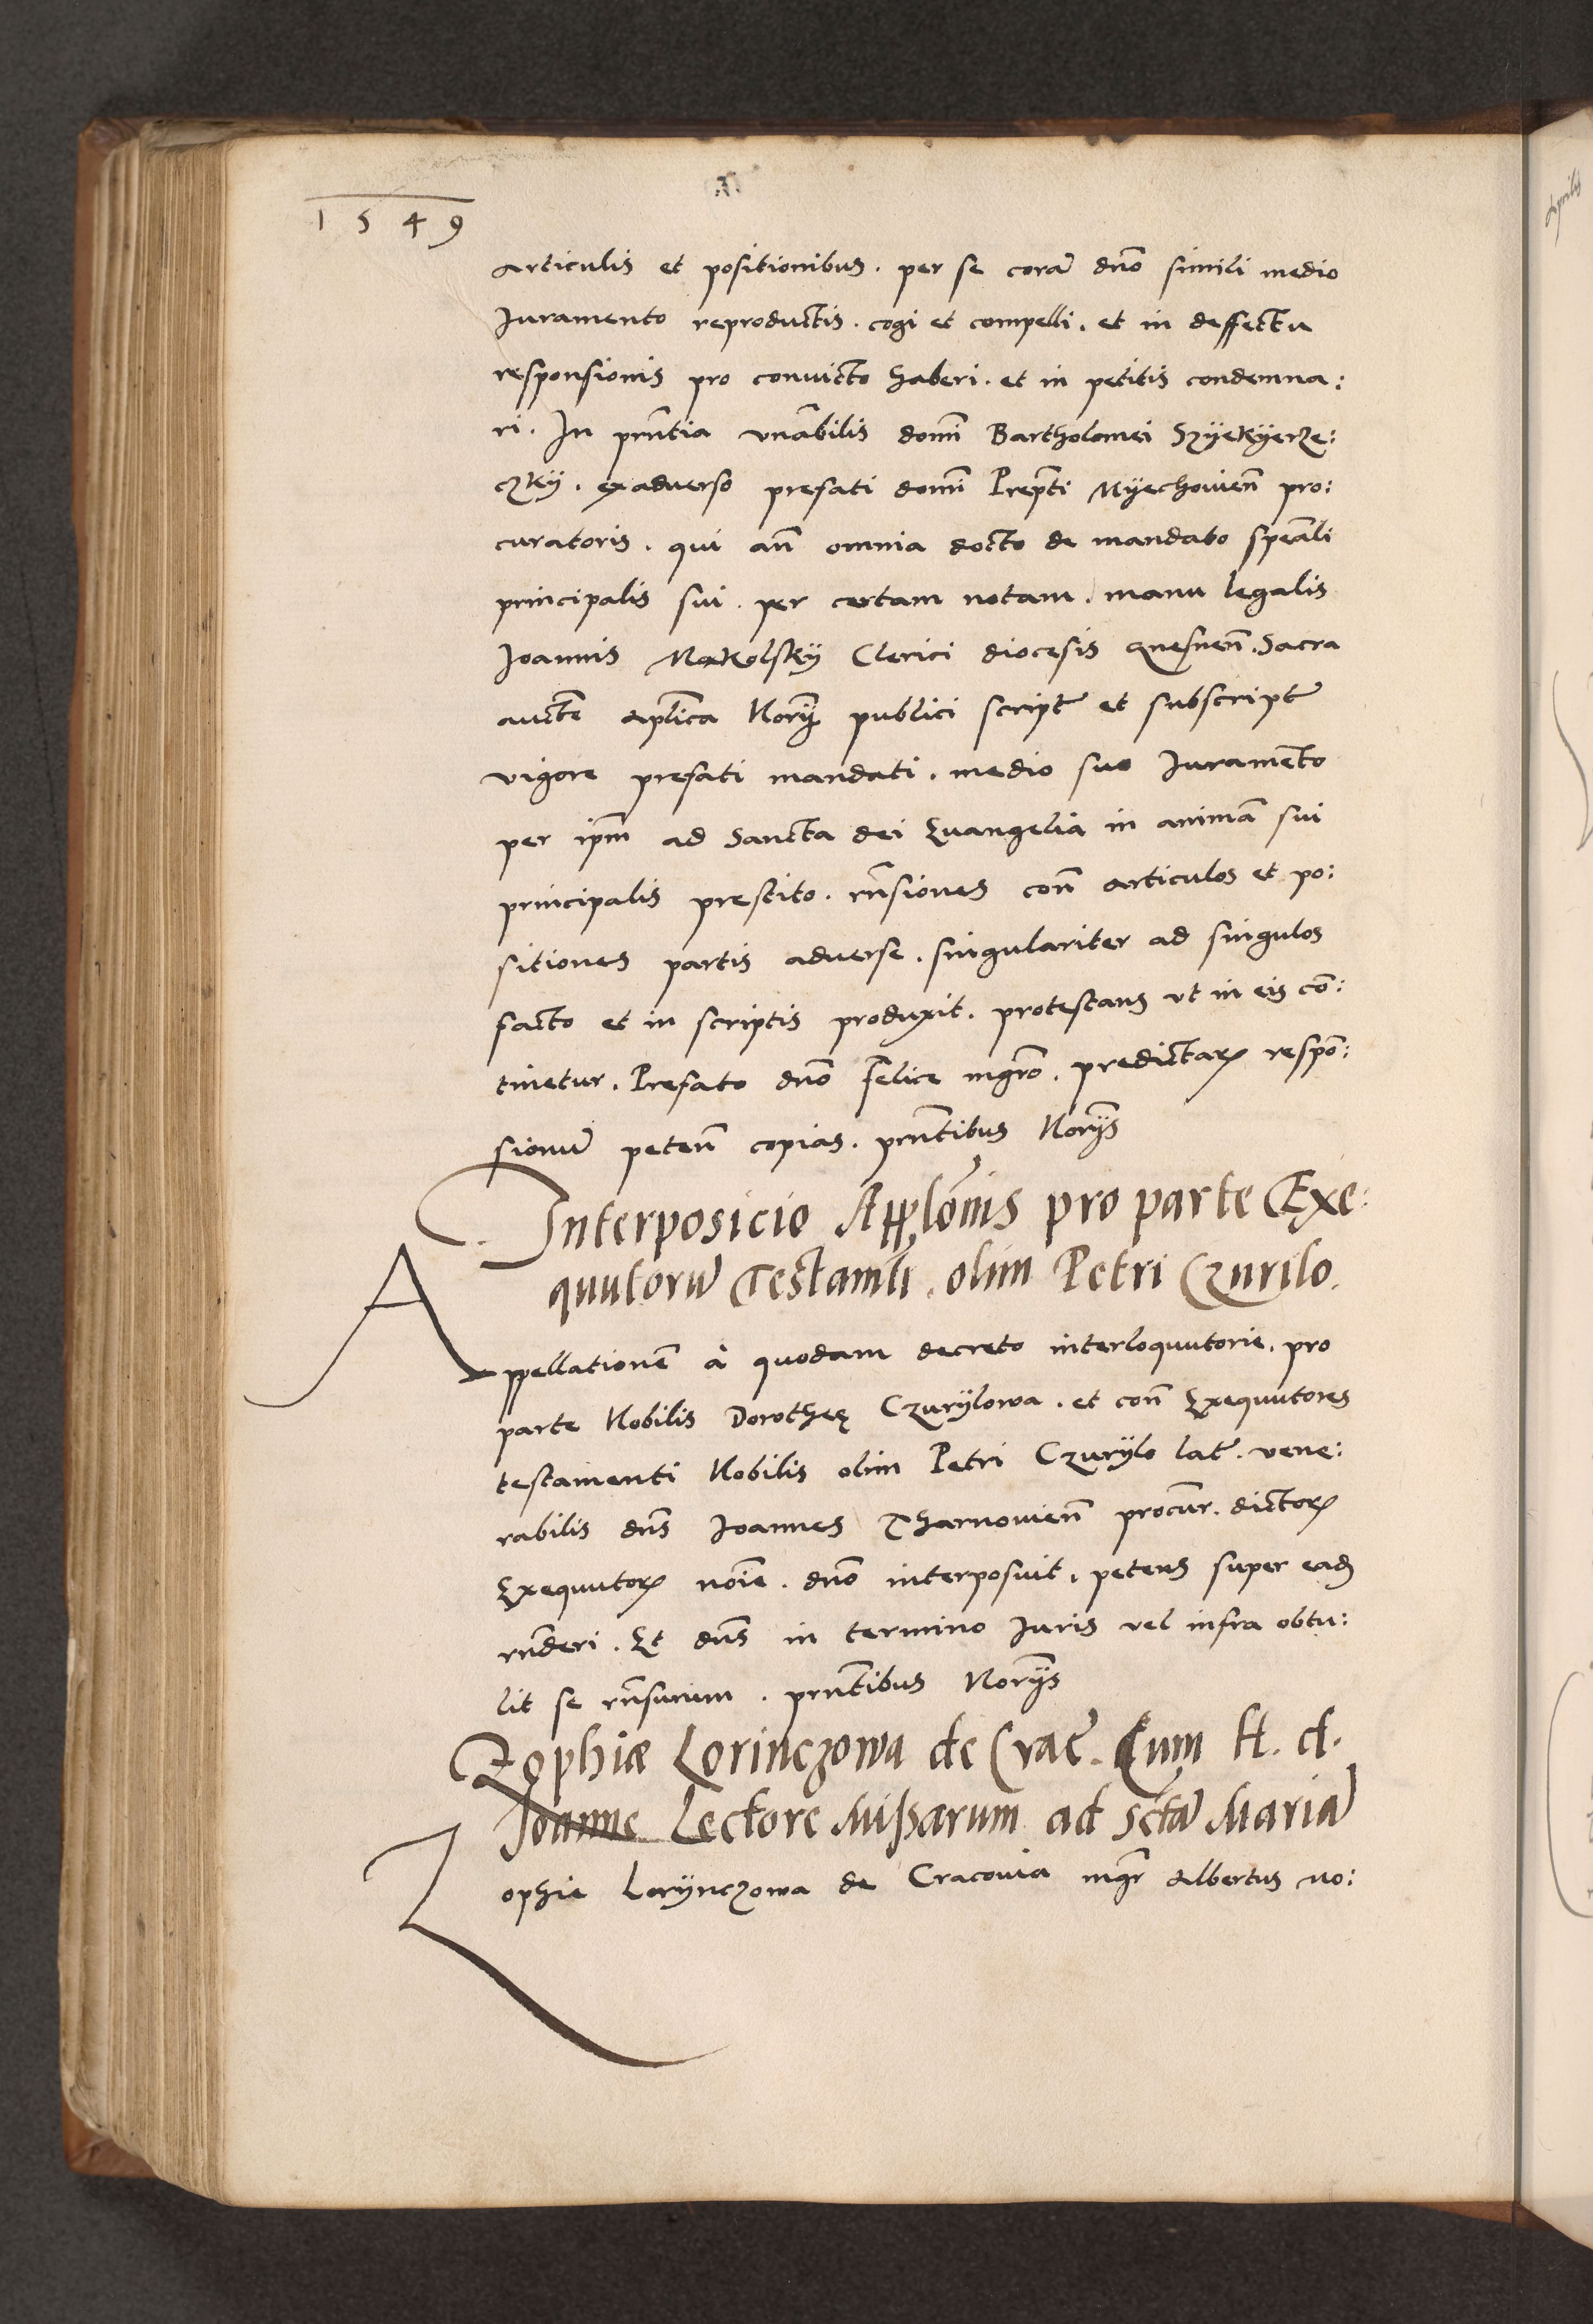 1549
articulis et positionibus. per se corā dnō simili medio
Iuramento reproductis. cogi et compelli. et in deffectu
responsionis pro convicto haberi. et in petitis condemna:
ri. In pn̄tia vnābilis domī Bartholomei Szyekyerze:
czky. exadverso prefati domī Prep̄ti Myechovien̄ pro:
curatoris. qui an̄ omnia docto de mandato speāli
principalis sui. per certam notam. manu legalis
Joannis Mokolsky Clerici diocesis gnesnen̄. Sacra
aucte apl̄ica Norȳ publici script̄ et subscript̄
vigore prefati mandati. medio suo Iuramēto
per ip̄m ad Sancta dei Evangelia in animā sui
principalis prestito. rn̄siones con̄ articulos et po:
sitiones partis adverse. singulariter ad singulos
facto et in scriptis produxit. protestans ut in eis cō:
tinetur. Prefato dnō Felice mgrō. predictarꝝ respō:
sionū peten̄ copias. pn̄tibus Norijs
Interposicio Applōnis pro parte Exe:
quutorū Testamti. olim Petri Czurilo.
Appellationē à quodam decreto interloquutorie. pro
parte Nobilis Dorotheę Czurylowa. et con̄ Exequutores
testamenti Nobilis olim Petri Czurylo lat̄. vene:
rabilis dn̄s Joannes Tharnovien̄ procur̄. dictorꝝ
Exequutorꝝ noīe. dnō interposuit. petens super eadȝ
rn̄deri. Et dn̄s in termino Iuris vel infra obtu:
lit se rn̄surum. pn̄tibus Norijs
Zophiæ Lorinczowa de Crac̄. Cum H. d.
Joanne Lectore Missarum ad Sctā Mariā
Zophie Lorynczowa de Cracovia mgr̄ Albertus no: